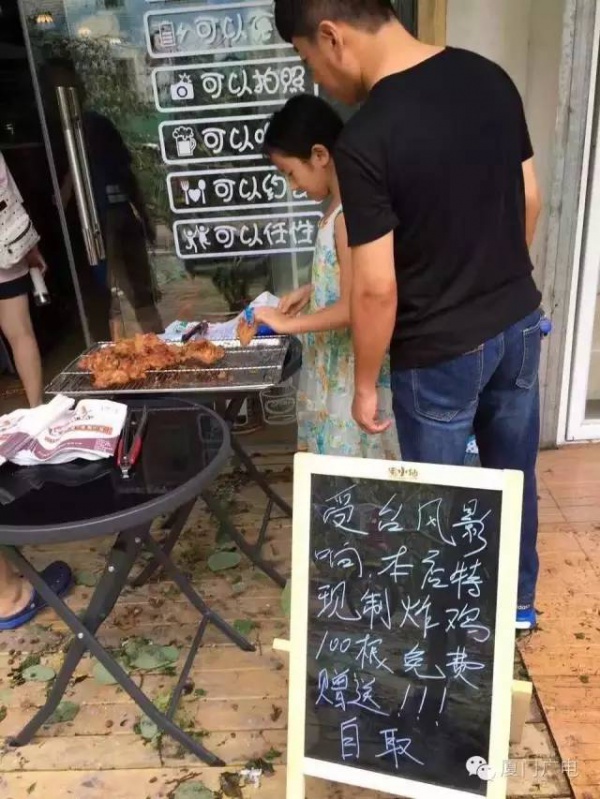 可以
可以拍照
可以
可以约
可以任性
受台风影
响，本店特
现制炸鸡
100根免费
赠送！！！
自取
厦门广电